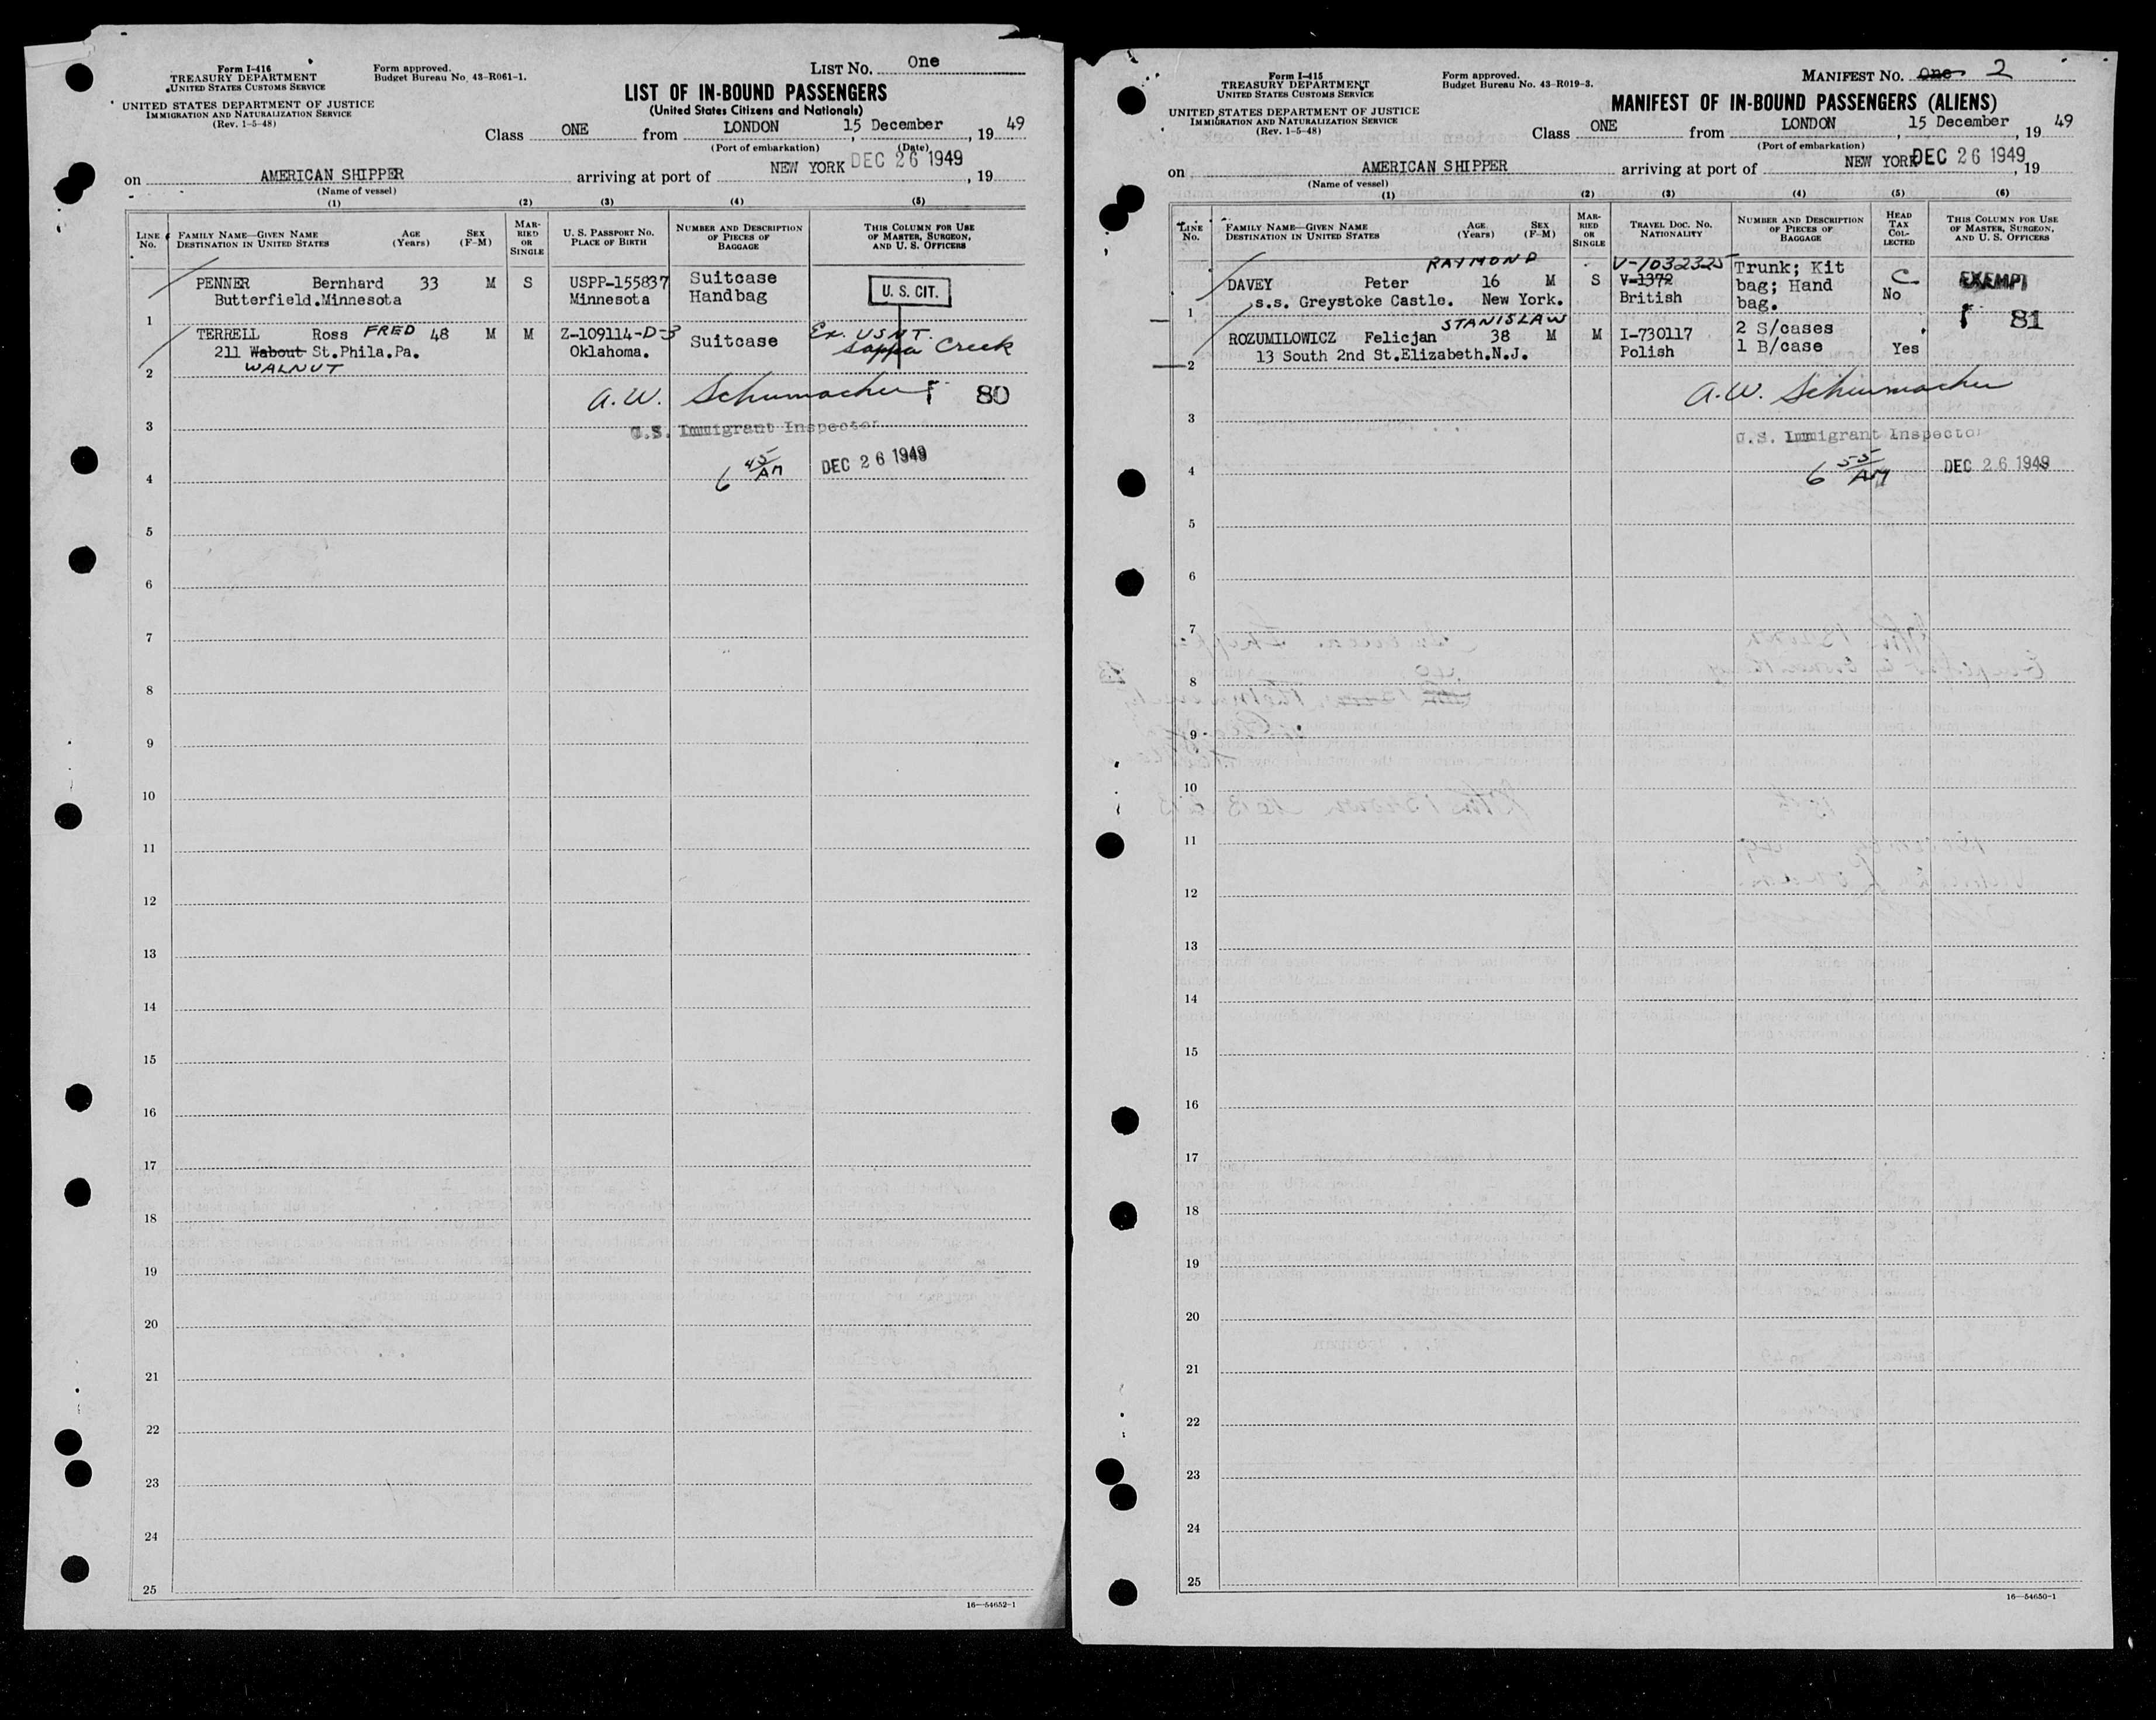 Form I-416
TREASURY DEPARTMENT
UNITED STATES CUSTOMS SERVICE
UNITED STATES DEPARTMENT OF JUSTICE
IMMIGRATION AND NATURALIZATION SERVICE
(Rev. 1-5-48)
Form approved.
Budget Bureau No. 43-R061-1.
LIST NO. One
LIST OF IN-BOUND PASSENGERS
(United States Citizens and Nationals)
Class ONE from LONDON, 15 December, 1949
(Port of embarkation) (Date)
on AMERICAN SHIPPER arriving at port of NEW YORK DEC 26 1949, 19
(Name of vessel)
(1) (2) (3) (4) (5)
LINE No. FAMILY NAME—GIVEN NAME DESTINATION IN UNITED STATES AGE (Years) SEX (F-M) MARRIED OR SINGLE U. S. PASSPORT NO. PLACE OF BIRTH NUMBER AND DESCRIPTION OF PIECES OF BAGGAGE THIS COLUMN FOR USE OF MASTER, SURGEON, AND U. S. OFFICERS
PENNER Bernhard 33 M S USPP-155837 Suitcase U. S. CIT.
Butterfield.Minnesota Minnesota Handbag
1
TERRELL Ross FRED 48 M M Z-109114-D-3 Suitcase Ex. USNT.
211 Wabout St.Phila.Pa. Oklahoma. Sappa Creek
WALNUT
2
A.W. Schumacher 80
3
U.S. Immigrant Inspector
6 45/AM DEC 26 1949
4
5
6
7
8
9
10
11
12
13
14
15
16
17
18
19
20
21
22
23
24
25
16—54652-1
Form I-415
TREASURY DEPARTMENT
UNITED STATES CUSTOMS SERVICE
UNITED STATES DEPARTMENT OF JUSTICE
IMMIGRATION AND NATURALIZATION SERVICE
(Rev. 1-5-48)
Form approved.
Budget Bureau No. 43-R019-3.
MANIFEST NO. One 2
MANIFEST OF IN-BOUND PASSENGERS (ALIENS)
Class ONE from LONDON, 15 December, 1949
(Port of embarkation)
on AMERICAN SHIPPER arriving at port of NEW YORK DEC 26 1949, 19
(Name of vessel)
(1) (2) (3) (4) (5) (6)
LINE No. FAMILY NAME—GIVEN NAME DESTINATION IN UNITED STATES AGE (Years) SEX (F-M) MARRIED OR SINGLE TRAVEL DOC. NO. NATIONALITY NUMBER AND DESCRIPTION OF PIECES OF BAGGAGE HEAD TAX COLLECTED THIS COLUMN FOR USE OF MASTER, SURGEON, AND U. S. OFFICERS
RAYMOND V-1032325 Trunk; Kit
DAVEY Peter 16 M S V-1372 bag; Hand C EXEMPT
s.s. Greystoke Castle. New York. British bag. No
1 81
STANISLAW
ROZUMILOWICZ Felicjan 38 M M I-730117 2 S/cases
13 South 2nd St.Elizabeth.N.J. Polish 1 B/case Yes
2
A.W. Schumacher
3
U.S. Immigrant Inspector
6 55/AM DEC 26 1949
4
5
6
7
8
9
10
11
12
13
14
15
16
17
18
19
20
21
22
23
24
25
16—54650-1